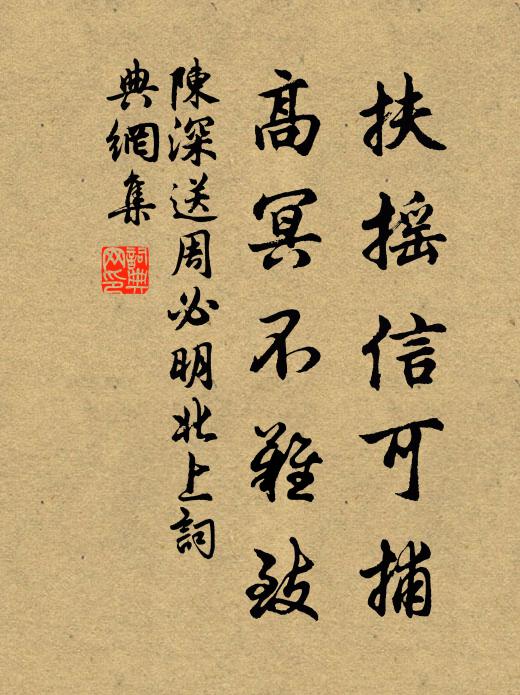 扶搖信可捕
高冥不難致
陳深送周必明北上詞
典網集
詞典
网印